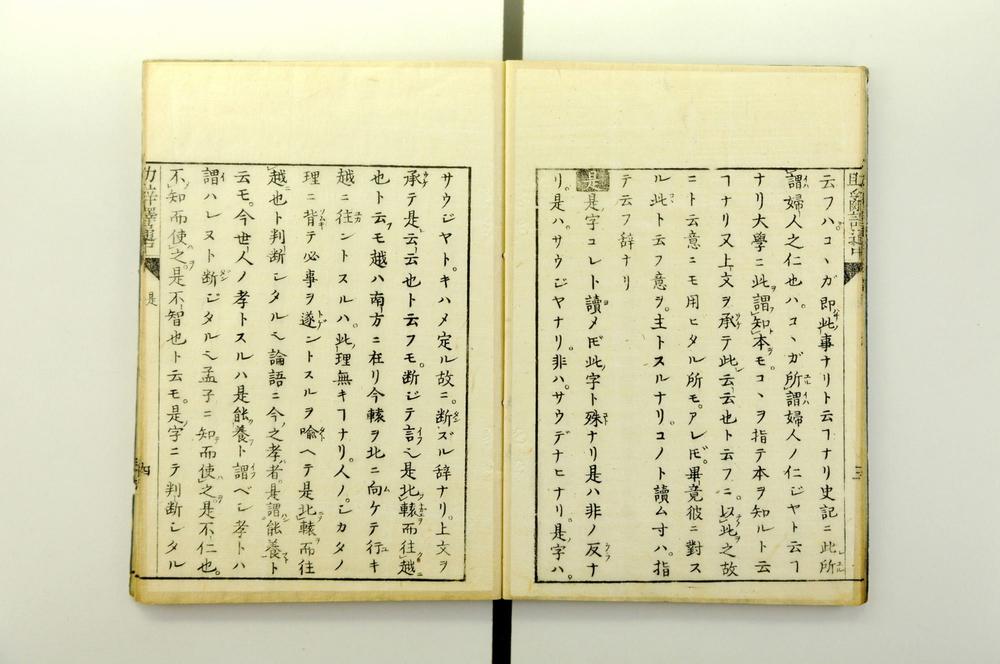 云フハ。コヽガ即此事ナリト云ヿナリ史記ニ此所
謂婦人之仁也ハ。コヽガ所謂婦人ノ仁ジヤト云ヿ
ナリ大學ニ此謂知本モ。コヽヲ指テ本ヲ知ルト云
ヿナリ又上文ヲ承テ此云云也ト云フニ。以此之故
ニト云意ニモ用ヒタル所モ。アレ𪜈。畢竟彼ニ對ス
ル此ト云フ意ヲ。主トスルナリ。コノト讀ム寸ハ。指
テ云フ辞ナリ
是 是字コレト讀メ𪜈此字ト殊ナリ是ハ非ノ反ナ
リ。是ハ。サウジヤナリ。非ハ。サウデナヒナリ。是字ハ。
サウジヤト。キハメ定ル故ニ。断ズル辞ナリ。上文ヲ
承テ是云云也ト云フモ。断ジテ言フ是北轅而往越
也ト云フモ越ハ南方ニ在リ今轅ヲ北ニ向ケテ行キ
越ニ往ントスルハ。此理無キヿナリ。人ノ。シカタノ
理ニ背テ必事ヲ遂ントスルヲ喩ヘテ是北轅而往
越也ト判断シタル也論語ニ今之孝者是謂能養ト
云モ。今世人ノ孝トスルハ是能養ト謂ベシ孝トハ
謂ハレヌト断ジタル也孟子ニ知而使之是不仁也。
不知而使之是不智也ト云モ。是字ニテ判断シタル
是
四
三